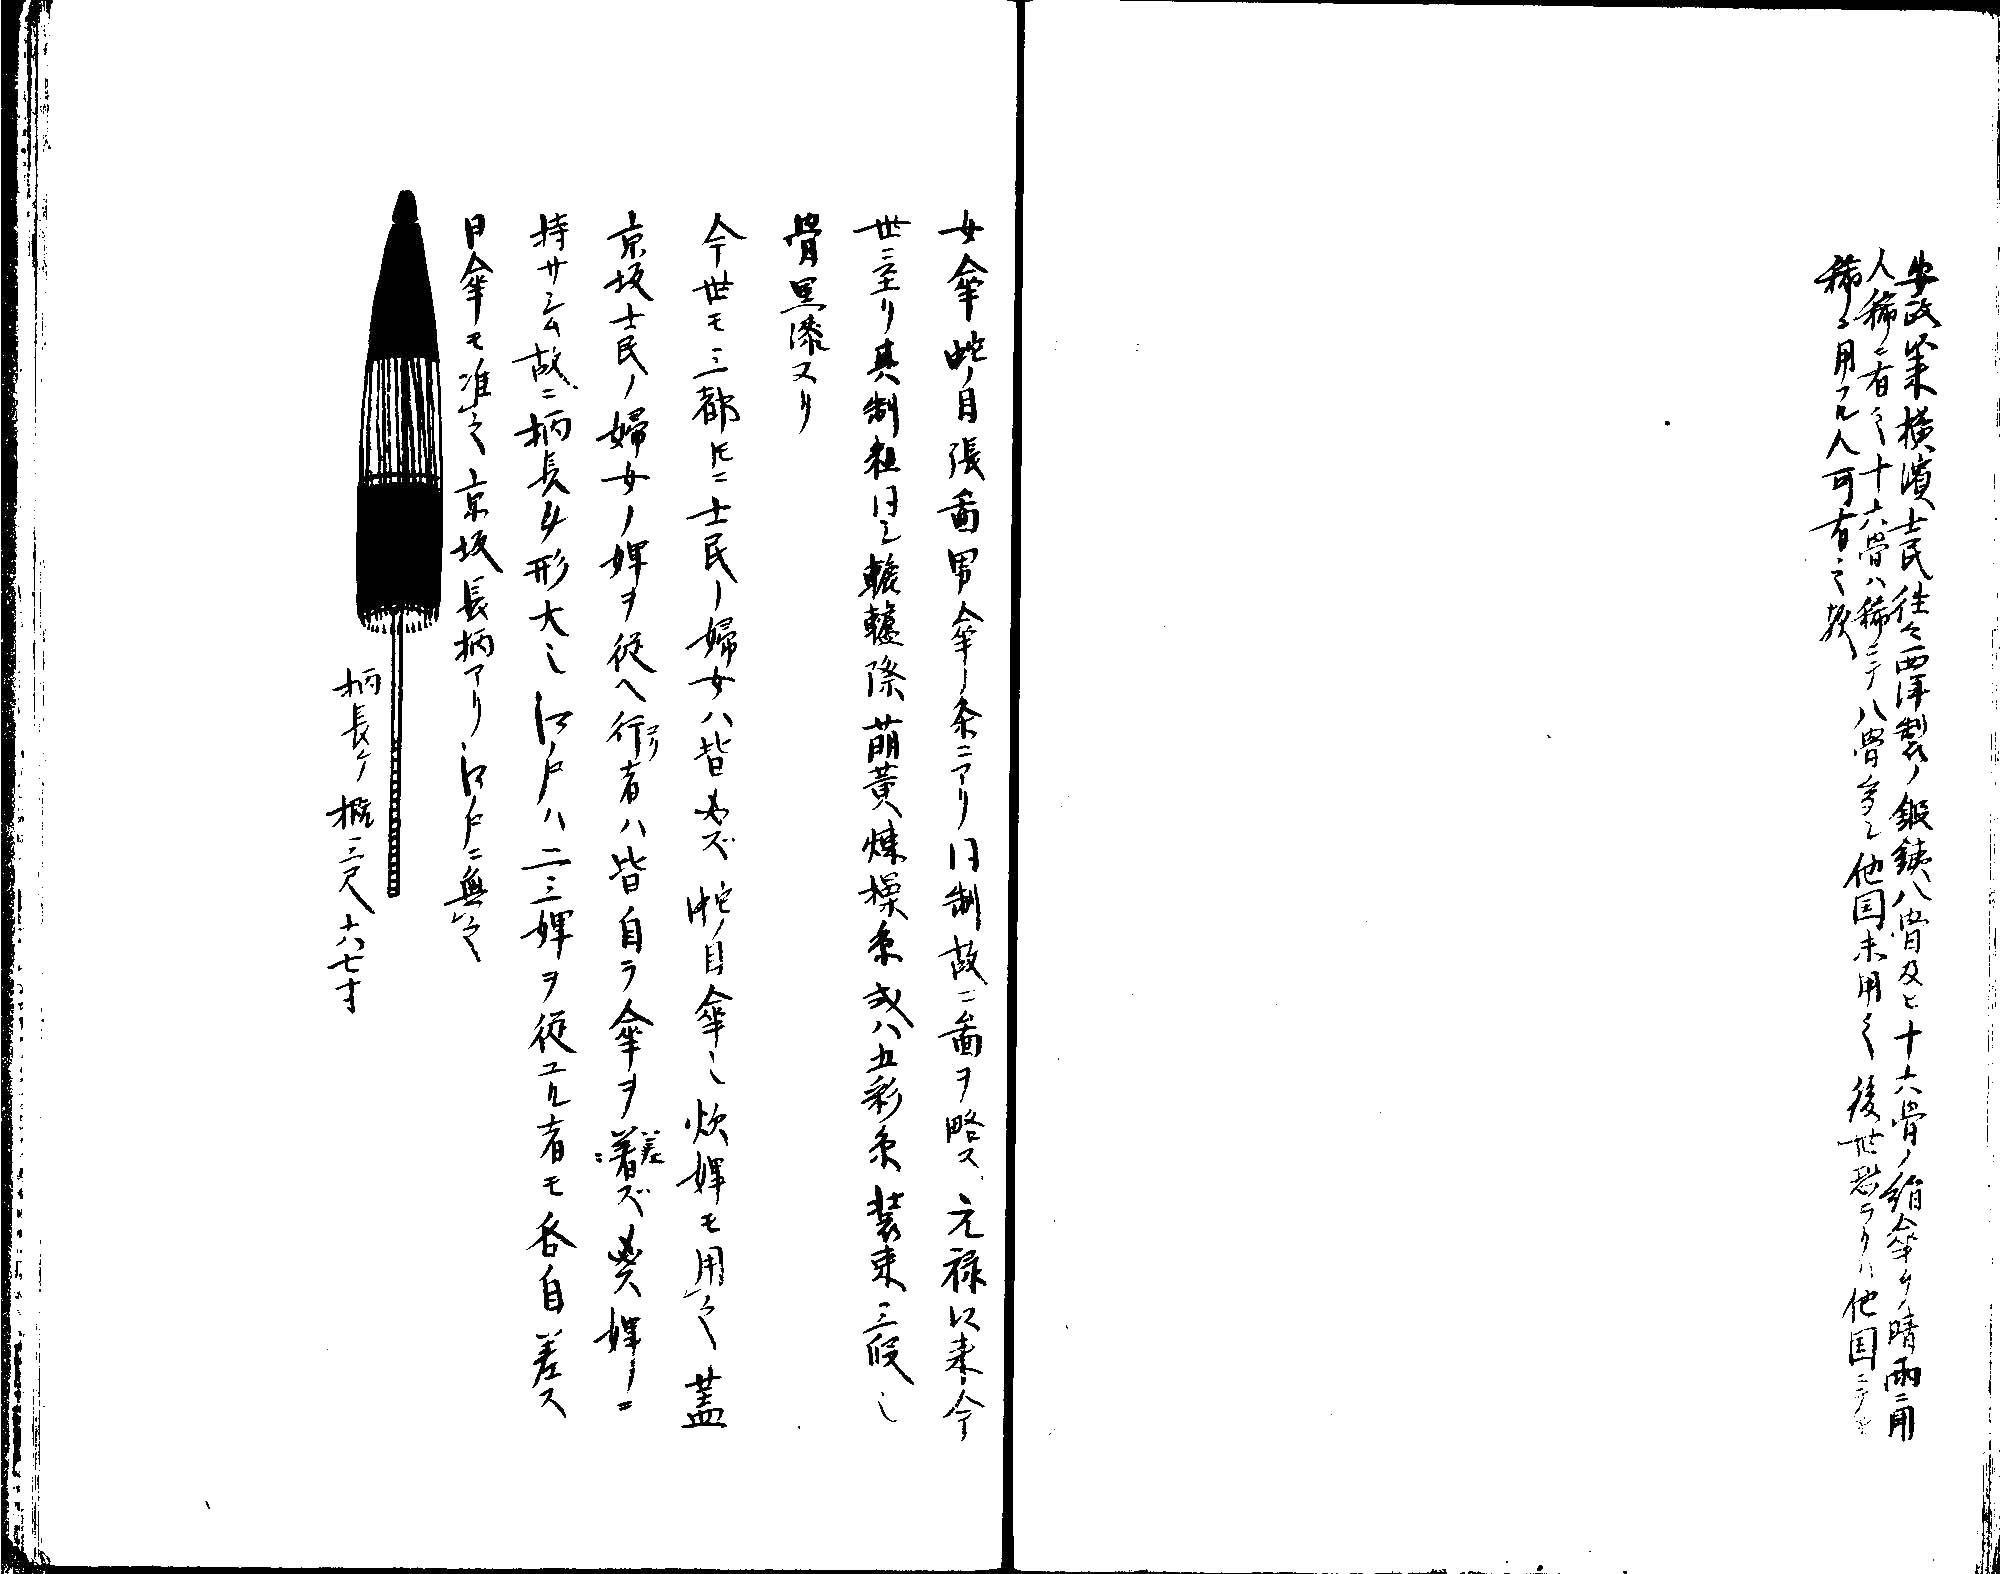 安政以来横濱士民往々西洋製ノ鍛銕八骨及ヒ十六骨ノ絹傘ヲ晴雨ニ用
人稀ニ有之十六骨ハ稀ニテ八骨多シ他国未用之後世恐ラクハ他国ニテモ
稀ニ用フル人可有之欤
女傘蛇ノ目張啚男傘ノ条ニアリ同制故ニ啚ヲ略ス元禄以来今
世ニ至リ其制粗同シ轆轤際萌黄煉操糸或ハ五彩糸装束三段也
骨黒漆ヌリ
今世モ三都トモニ士民ノ婦女ハ皆必ズ蛇ノ目傘也炊婢モ用之蓋
京坂士民ノ婦女ノ婢ヲ従ヘ行ク者ハ皆自ラ傘ヲ着差ズ必ス婢ニ
持サシム故ニ柄長ク形大也江戸ハ二三婢ヲ従エル者モ各自差ス
日傘モ准之京坂長柄アリ江戸ニ無之
柄長ケ概三尺六七寸